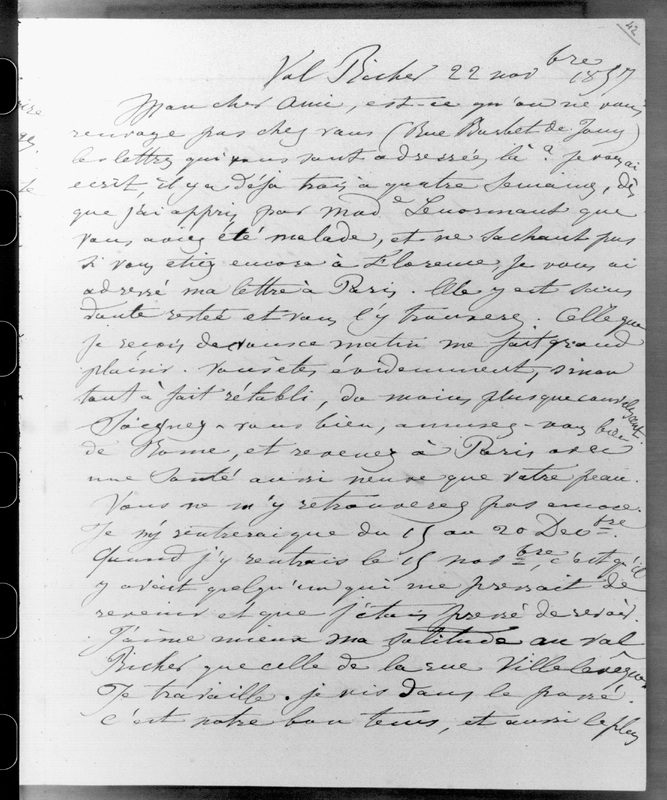 42
Val Richer 22 nov bre 1857
Mon cher ami, est-ce qu'on ne vous
renvoye pas chez vous (Rue Barbet de Jouy)
les lettres qui vous sont adressées là ? Je vous ai
ecrit, il y a déja trois à quatre semaines, dès
que j'ai appris par Made Lenormant que
vous aviez été malade, et ne sachant pas
si vous étiez encore à Florence, je vous ai
adressé ma lettre à Paris. Elle y est sans
doute restée et vous l'y trouverez. Celle que
je reçois de vous ce matin me fait grand
plaisir. Vous êtes évidemment, sinon
tout à fait rétabli, du moins plus que convalescent.
Soignez-vous bien, amusez-vous bien
de Rome, et revenez à Paris avec
une santé aussi neuve que votre peau.
Vous ne m'y retrouverez pas encore.
Je n'y rentrerai que du 15 au 20 Decbre.
Quand j'y rentrais le 15 novbre, c'est qu'il
y avait quelqu'un qui me pressait de
revenir et que j'étais pressé de revoir.
J'aime mieux ma solitude au Val
Richer que celle de la rue Ville l'evêque.
Je travaille. Je vis dans le passé.
C'est notre bon tems, et aussi le plus